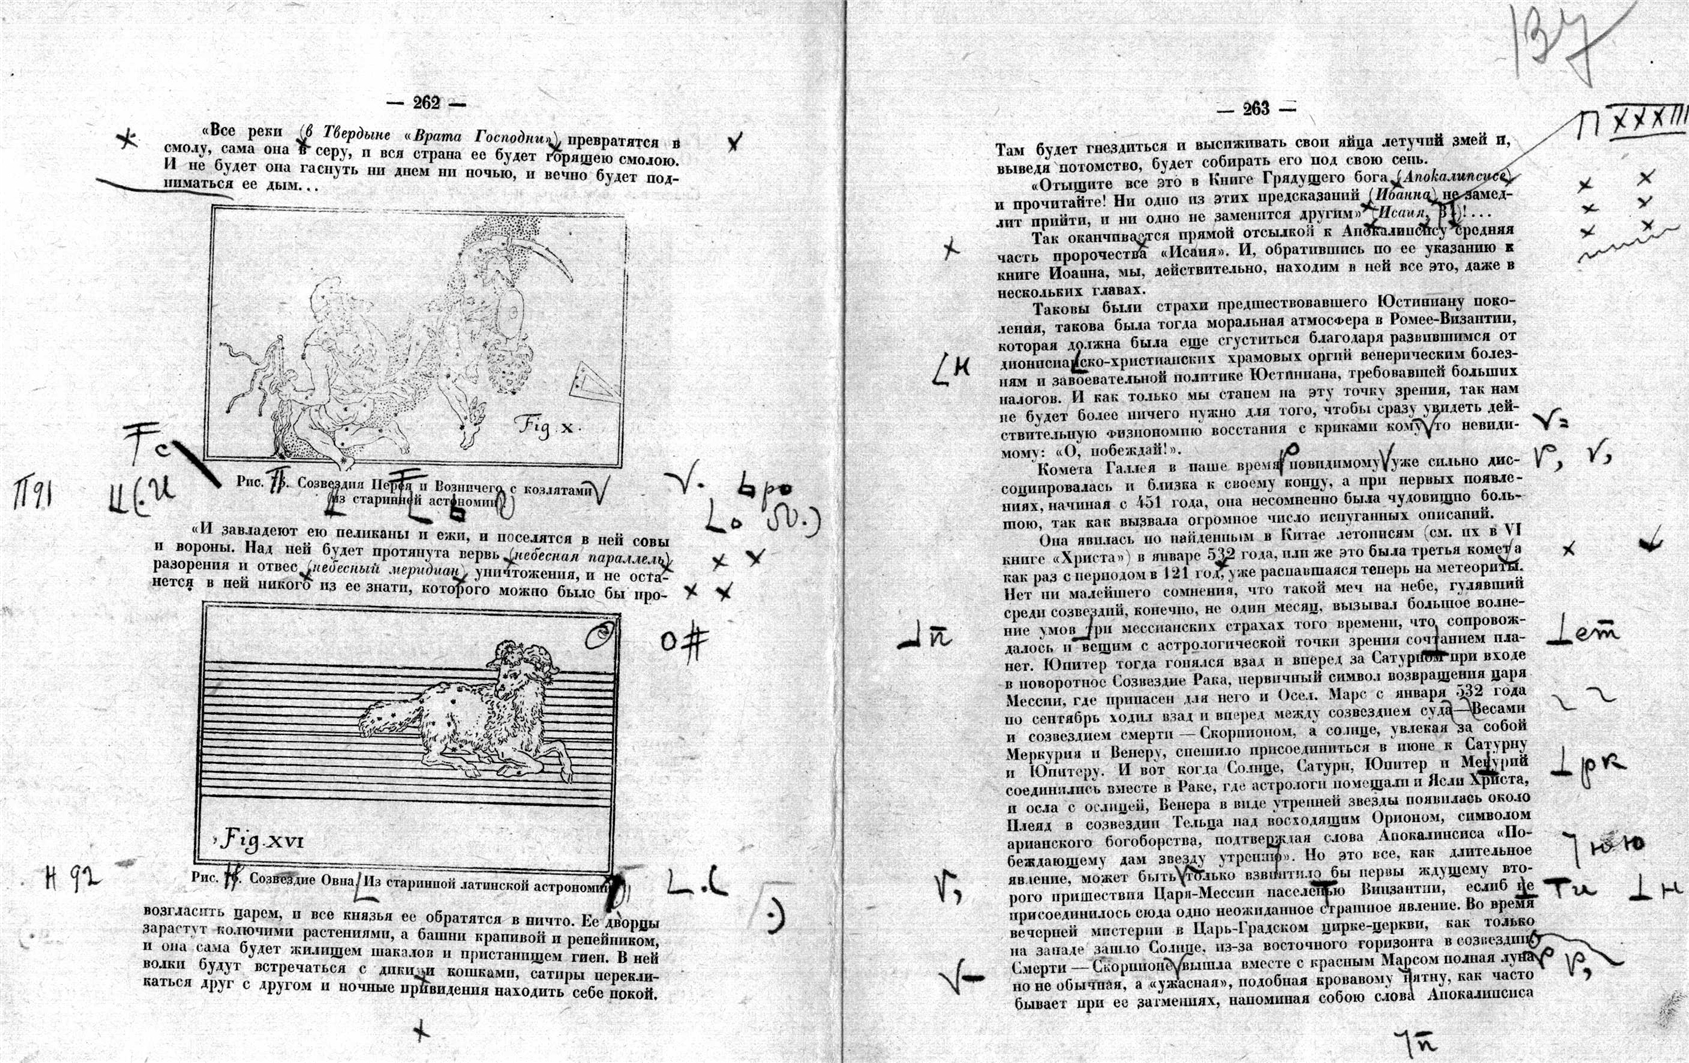 — 262 —
«Все реки (в Твердыне «Врата Господни») превратятся в
смолу, сама она в серу, и вся страна ее будет горящею смолою.
И не будет она гаснуть ни днем ни ночью, и вечно будет под-
ниматься ее дым...
Fig. X.
П91
Рис. Созвездия Персея и Возничего с козлятами
(из старинной астрономии)
«И завладеют ею пеликаны и ежи, и поселятся в ней совы
и вороны. Над ней будет протянута вервь (небесная параллель)
разорения и отвес (небесный меридиан) уничтожения, и не оста-
нется в ней никого из ее знати, которого можно было бы про-
Fig. XVI
Н 92
Рис. Созвездие Овна. Из старинной латинской астрономии
возгласить царем, и все князья ее обратятся в ничто. Ее дворцы
зарастут колючими растениями, а башни крапивой и репейником,
и она сама будет жилищем шакалов и пристанищем гиен. В ней
волки будут встречаться с дикими кошками, сатиры перекли-
каться друг с другом и ночные привидения находить себе покой.
137
— 263 —
П XXXIII
Там будет гнездиться и высиживать свои яйца летучий змей и,
выведя потомство, будет собирать его под свою сень.
«Отыщите все это в Книге Грядущего бога (Апокалипсисе)
и прочитайте! Ни одно из этих предсказаний (Иоанна) не замед-
лит прийти, и ни одно не заменится другим» (Исаия, )!...
Так оканчивается прямой отсылкой к Апокалипсису средняя
часть пророчества «Исаия». И, обратившись по ее указанию к
книге Иоанна, мы, действительно, находим в ней все это, даже в
нескольких главах.
Таковы были страхи предшествовавшего Юстиниану поко-
ления, такова была тогда моральная атмосфера в Ромее-Византии,
которая должна была еще сгуститься благодаря развившимся от
дионисиаско-христианских храмовых оргий венерическим болез-
ням и завоевательной политике Юстиниана, требовавшей больших
налогов. И как только мы станем на эту точку зрения, так нам
не будет более ничего нужно для того, чтобы сразу увидеть дей-
ствительную физиономию восстания с криками кому то невиди-
мому: «О, побеждай!».
Комета Галлея в наше время повидимому уже сильно дис-
социировалась и близка к своему концу, а при первых появле-
ниях, начиная с 451 года, она несомненно была чудовищно боль-
шою, так как вызвала огромное число испуганных описаний.
Она явилась по найденным в Китае летописям (см. их в VI
книге «Христа») в январе 532 года, или же это была третья комета
как раз с периодом в 121 год, уже распавшаяся теперь на метеориты.
Нет ни малейшего сомнения, что такой меч на небе, гулявший
среди созвездий, конечно, не один месяц, вызывал большое волне-
ние умов при мессианских страхах того времени, что сопровож-
далось и вещим с астрологической точки зрения сочтанием пла-
нет. Юпитер тогда гонялся взад и вперед за Сатурном при входе
в поворотное Созвездие Рака, первичный символ возвращения царя
Мессии, где припасен для него и Осел. Марс с января 532 года
по сентябрь ходил взад и вперед между созвездием суда—Весами
и созвездием смерти — Скорпионом, а солнце, увлекая за собой
Меркурия и Венеру, спешило присоединиться в июне к Сатурну
и Юпитеру. И вот когда Солнце, Сатурн, Юпитер и Мекурий
соединились вместе в Раке, где астрологи помещали и Ясли Христа,
и осла с ослицей, Венера в виде утренней звезды появилась около
Плеяд в созвездии Тельца над восходящим Орионом, символом
арианского богоборства, подтверждая слова Апокалипсиса «По-
беждающему дам звезду утреннюю». Но это все, как длительное
явление, может быть только взвинтило бы нервы ждущему вто-
рого пришествия Царя-Мессии населенью Византии, еслиб не
присоединилось сюда одно неожиданное страшное явление. Во время
вечерней мистерии в Царь-Градском цирке-церкви, как только
на западе зашло Солнце, из-за восточного горизонта в созвездии
Смерти — Скорпионе вышла вместе с красным Марсом полная луна
но не обычная, а «ужасная», подобная кровавому пятну, как часто
бывает при ее затмениях, напоминая собою слова Апокалипсиса